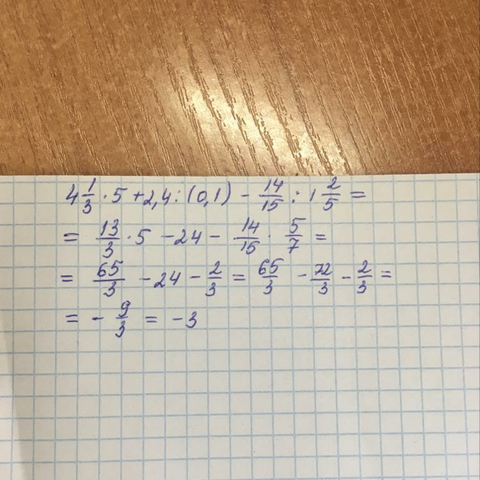 4 1/3 · 5 + 2,4 : (0,1) - 14/15 : 1 2/5 =
= 13/3 · 5 - 24 - 14/15 · 5/7 =
= 65/3 - 24 - 2/3 = 65/3 - 72/3 - 2/3 =
= - 9/3 = -3